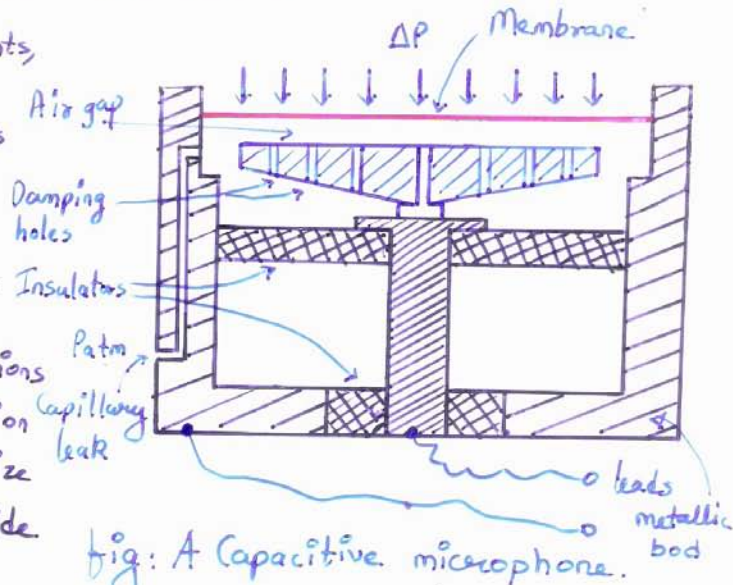 nts,
s
ions
on
ize
de.
ΔP
Membrane
Air gap
Damping
holes
Insulators
Patm
Capillary
leak
leads
metallic
bod
fig: A Capacitive microphone.